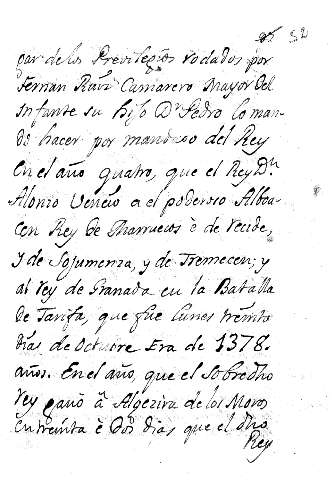 32
gar de los Previlegios rodados por
Fernan Ruiz Camarero Mayor del
Infante su hijo Dn. Pedro lo man-
dó hacer por mandado del Rey
En el año quatro, que el Rey Dn.
Alonso Venció a el poderoso Alboa-
cen Rey de Marruecos è de
y de Sojumenza, y de Tremecen; y
al rey de Granada en la Batalla
de Tarifa, que fue lunes treinta
días de Octubre Era de 1378.
años. En el año, que el Sobredho
rey ganó â Algezira de los Moros
en treinta è dos dias que el dho
Rey